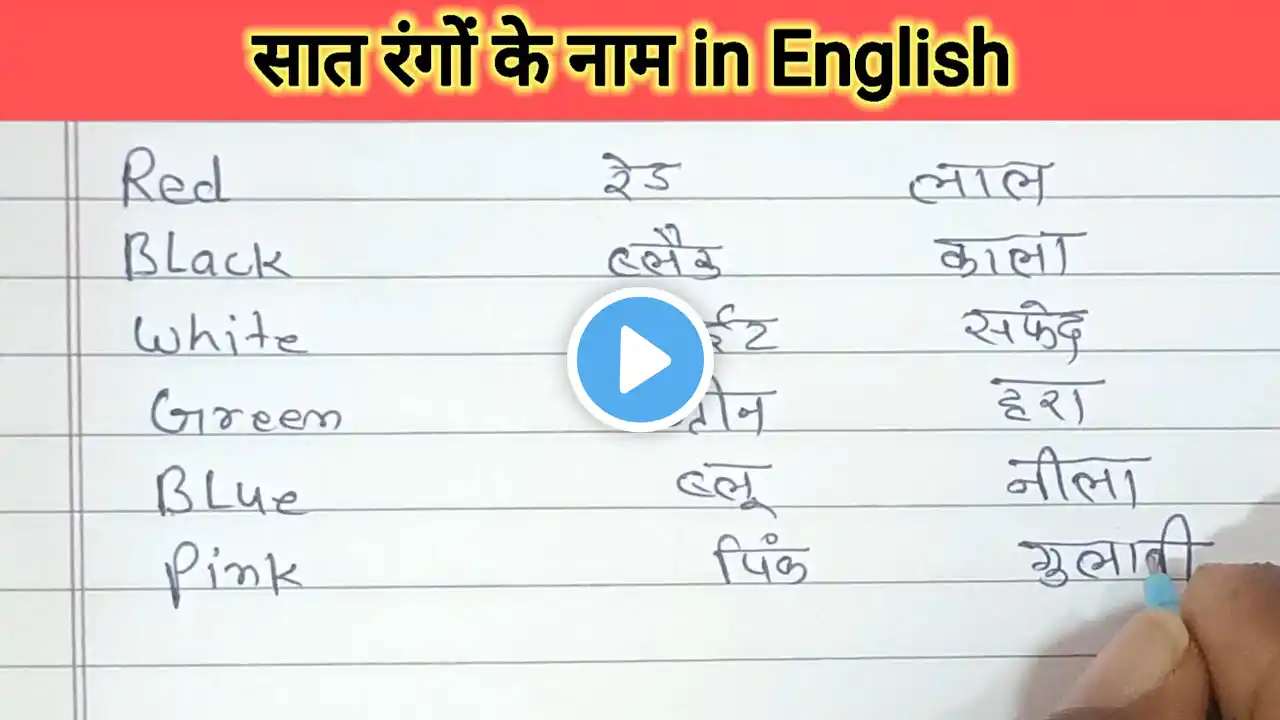 सात रंगों के नाम in English
Red रेड लाल
BLack ब्लैक काला
White सफेद
Green हरा
BLue ब्लू नीला
Pink पिंक गुलाबी